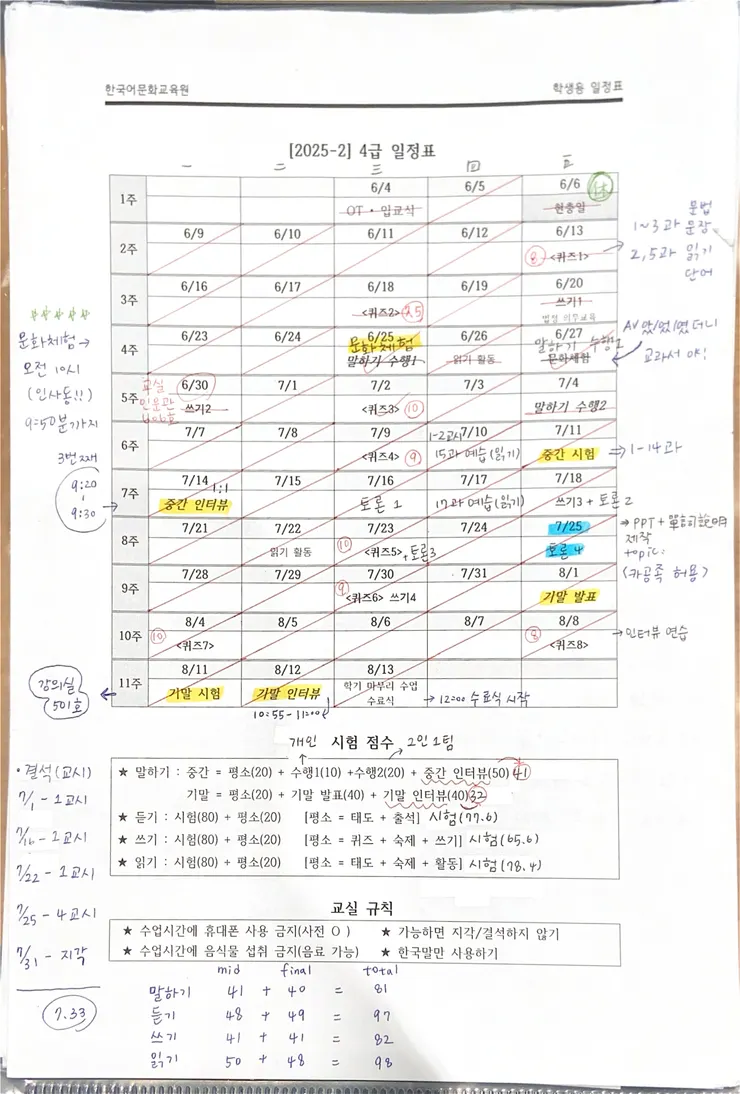 한국어문화교육원 학생용 일정표
[2025-2] 4급 일정표
一 二 三 四 五
1주 6/4 6/5 6/6 休
OT · 입교식 현충일
2주 6/9 6/10 6/11 6/12 6/13
⑧ <퀴즈1>
→ 1~3과 문법 문장
2,5과 읽기 단어
3주 6/16 6/17 6/18 6/19 6/20
<퀴즈2> 쓰기1
법정 의무교육
4주 6/23 6/24 6/25 6/26 6/27
문화체험 말하기 수행1
말하기 수행1 읽기 활동 문화체험
AV 았/었/였더니
교과서 야!
문화체험 →
오전 10시
(인사동!!)
9:50분까지
5주 6/30 7/1 7/2 7/3 7/4
교실 인문관
쓰기2 <퀴즈3> ⑩ 말하기 수행2
6주 7/7 7/8 7/9 7/10 7/11
1-2교시
<퀴즈4> ⑨ 15과 예습(읽기) 중간 시험 ⇒ 1-14과
3번째
9:20
9:30
7주 7/14 7/15 7/16 7/17 7/18
1:1
중간 인터뷰 토론 1 17과 예습(읽기) 쓰기3 + 토론 2
8주 7/21 7/22 7/23 7/24 7/25
읽기 활동 ⑩ <퀴즈5> + 토론3 토론 4
→ PPT + 單詞說明
제작
topic:
<카공족 허용>
9주 7/28 7/29 7/30 7/31 8/1
⑨ <퀴즈6> 쓰기4 기말 발표
10주 8/4 8/5 8/6 8/7 8/8
⑩ <퀴즈7> ⑧ <퀴즈8> → 인터뷰 연습
11주 8/11 8/12 8/13
기말 시험 기말 인터뷰 학기 마무리 수업
수료식 → 12:00 수료식 시작
강의실
501호
10:55-11:00
개인 시험 점수 2인 1팀
★ 말하기 : 중간 = 평소(20) + 수행1(10) +수행2(20) + 중간 인터뷰(50) 41
기말 = 평소(20) + 기말 발표(40) + 기말 인터뷰(40) 32
★ 듣기 : 시험(80) + 평소(20) [평소 = 태도 + 출석] 시험(77.6)
★ 쓰기 : 시험(80) + 평소(20) [평소 = 퀴즈 + 숙제 + 쓰기] 시험(65.6)
★ 읽기 : 시험(80) + 평소(20) [평소 = 태도 + 숙제 + 활동] 시험(78.4)
· 결석(교시)
7/1 - 1교시
7/16 - 2교시
7/22 - 1교시
7/25 - 4교시
7/31 - 지각
7.33
교실 규칙
★ 수업시간에 휴대폰 사용 금지(사전 O ) ★ 가능하면 지각/결석하지 않기
★ 수업시간에 음식물 섭취 금지(음료 가능) ★ 한국말만 사용하기
mid final total
말하기 41 + 40 = 81
듣기 48 + 49 = 97
쓰기 41 + 41 = 82
읽기 50 + 48 = 98